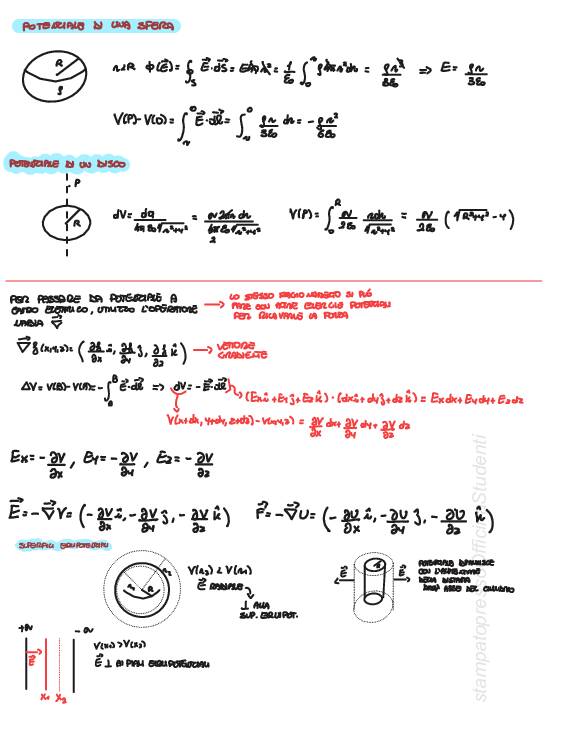 POTENZIALE DI UNA SFERA
R
ρ
r<R Φ(E⃗) = ∮ₛ E⃗·dS⃗ = E4πr² = 1/ε₀ ∫₀ʳ ρ4πr²dr = ρr³/3ε₀ ⇒ E = ρr/3ε₀
V(P)-V(0) = ∫ᵣ⁰ E⃗·dl⃗ = ∫ᵣ⁰ ρr/3ε₀ dr = -ρr²/6ε₀
POTENZIALE DI UN DISCO
P
R
dV = dq/4πε₀√r²+y² = σ2πr dr/4πε₀√r²+y²
2
V(P) = ∫₀ᴿ σ/2ε₀ rdr/√r²+y² = σ/2ε₀ (√R²+y² - y)
PER PASSARE DA POTENZIALE A
CAMPO ELETTRICO, UTILIZZO L'OPERATORE
NABLA ∇⃗
LO STESSO RAGIONAMENTO SI PUÒ
FARE CON ANCHE ENERGIE POTENZIALI
PER RICAVARNE LA FORZA
∇⃗f(x,y,z) = (∂f/∂x î, ∂f/∂y ĵ, ∂f/∂z k̂) → VETTORE
GRADIENTE
ΔV = V(B)-V(A) = -∫ₐᴮ E⃗·dl⃗ ⇒ dV = -E⃗·dl⃗
(Exî+Eyĵ+Ezk̂)·(dxî+dyĵ+dzk̂) = Exdx+Eydy+Ezdz
V(x+dx, y+dy, z+dz)-V(x,y,z) = ∂V/∂x dx + ∂V/∂y dy + ∂V/∂z dz
Ex = -∂V/∂x , Ey = -∂V/∂y , Ez = -∂V/∂z
E⃗ = -∇⃗V = (-∂V/∂x î, -∂V/∂y ĵ, -∂V/∂z k̂) F⃗ = -∇⃗U = (-∂U/∂x î, -∂U/∂y ĵ, -∂U/∂z k̂)
SUPERFICI EQUIPOTENZIALI
r₁ R r₂
V(r₂) < V(r₁)
E⃗ RADIALE
⊥ ALLA
SUP. EQUIPOT.
E⃗ E⃗
POTENZIALE DIMINUISCE
CON L'AUMENTARE
DELLA DISTANZA
DALL'ASSE DEL CILINDRO
+σ -σ
E⃗
x₁ x₂
V(x₁) > V(x₂)
E⃗ ⊥ AI PIANI EQUIPOTENZIALI
stampatopressoofficinaStudenti